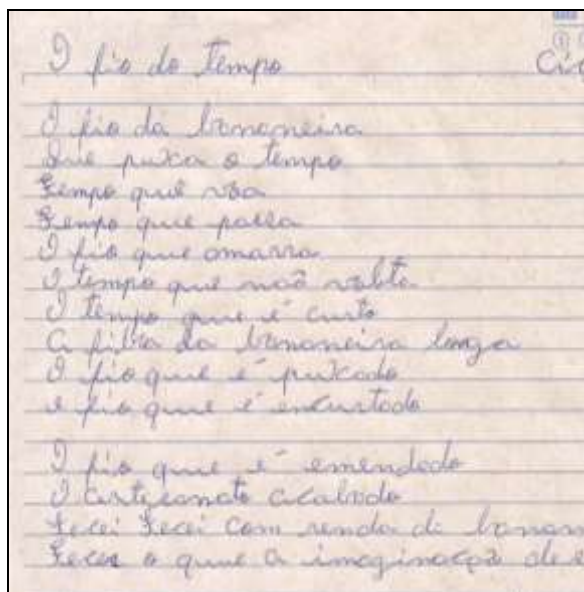 O fio do tempo
O fio da bananeira
Que puxa o tempo
Tempo que voa
Tempo que passa
O fio que amarra
O tempo que não volta
O tempo que é curto
A fibra da bananeira longa
O fio que é puxado
e fio que é encurtado
O fio que é emendado
O artesanato acabado
Tecei Tecei com renda de banan
Tecer o que a imaginaçã de